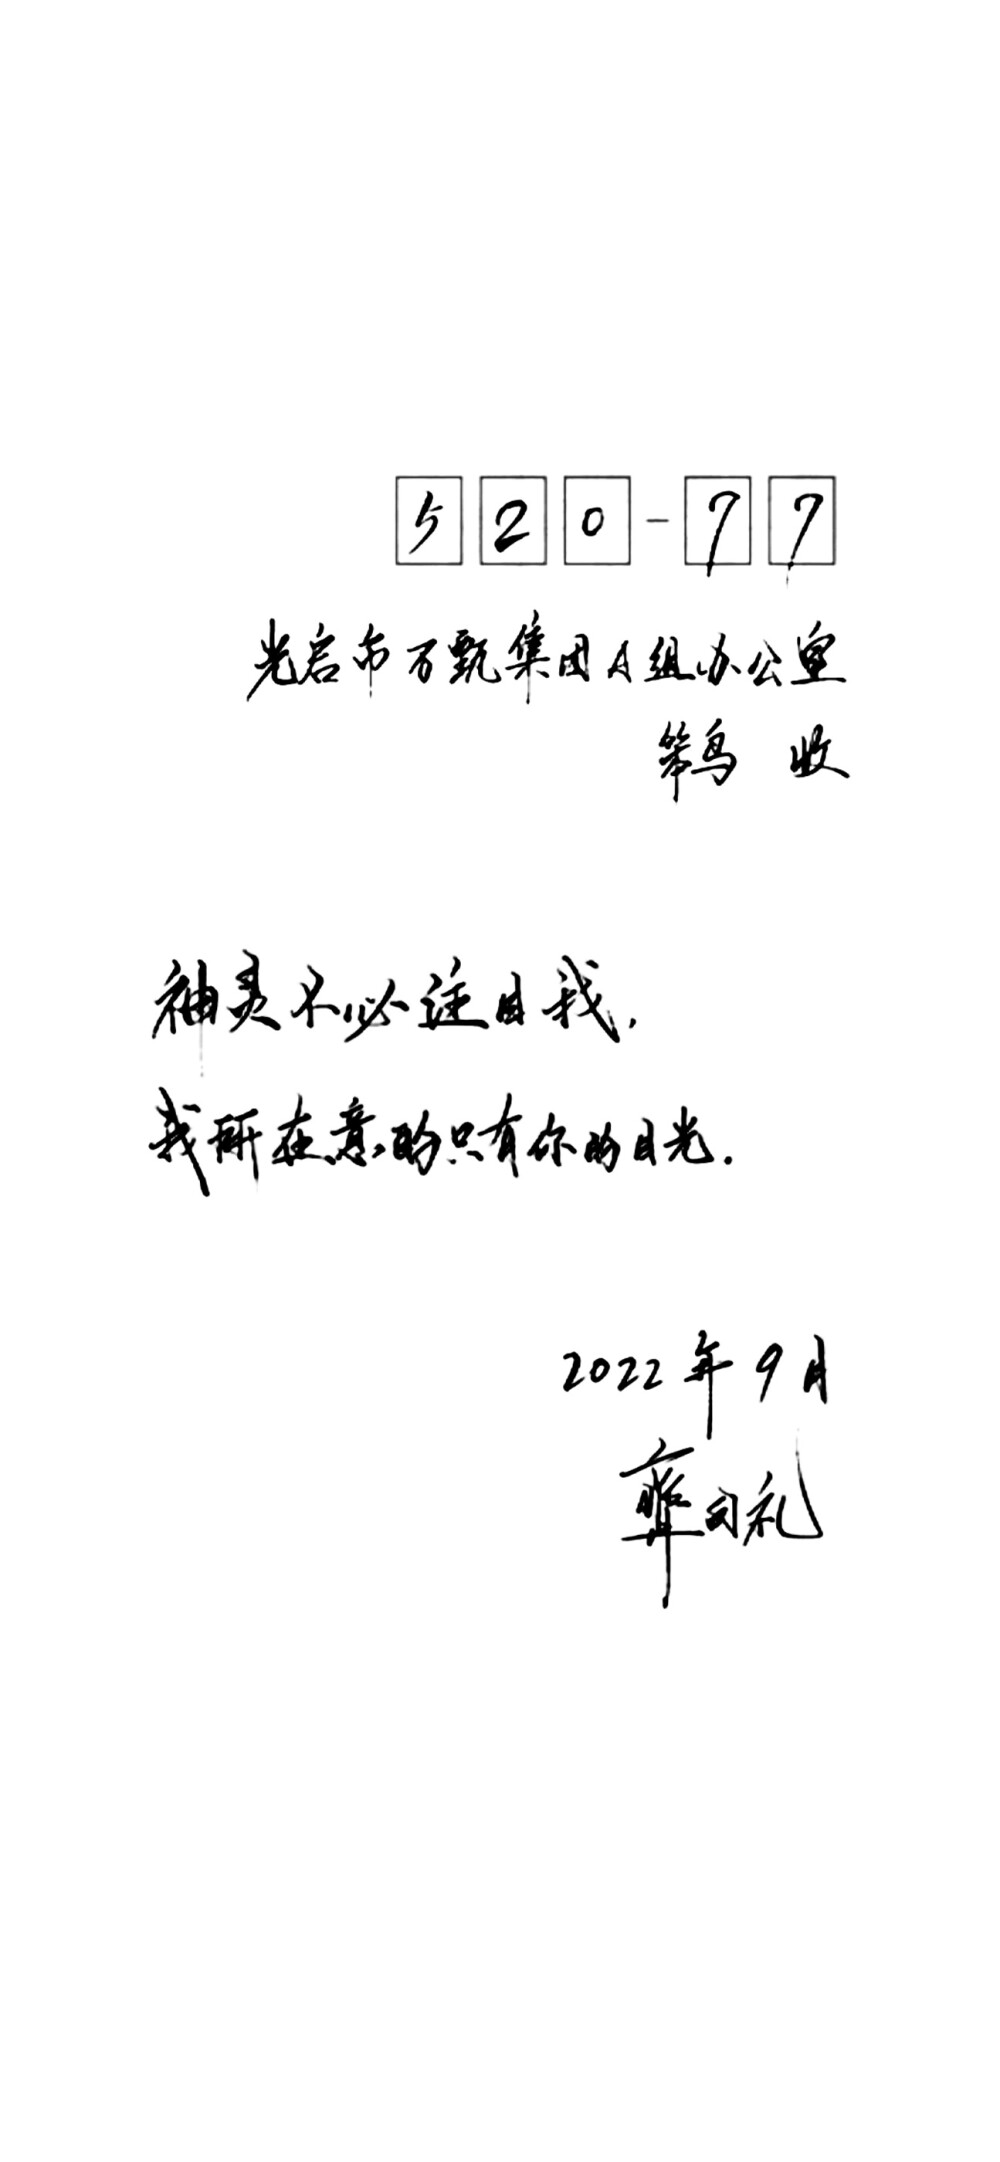 520-77
光启市万甄集团A组办公室
笨鸟 收
神灵不必注目我,
我所在意的只有你的目光.
2022年9月
齐司礼